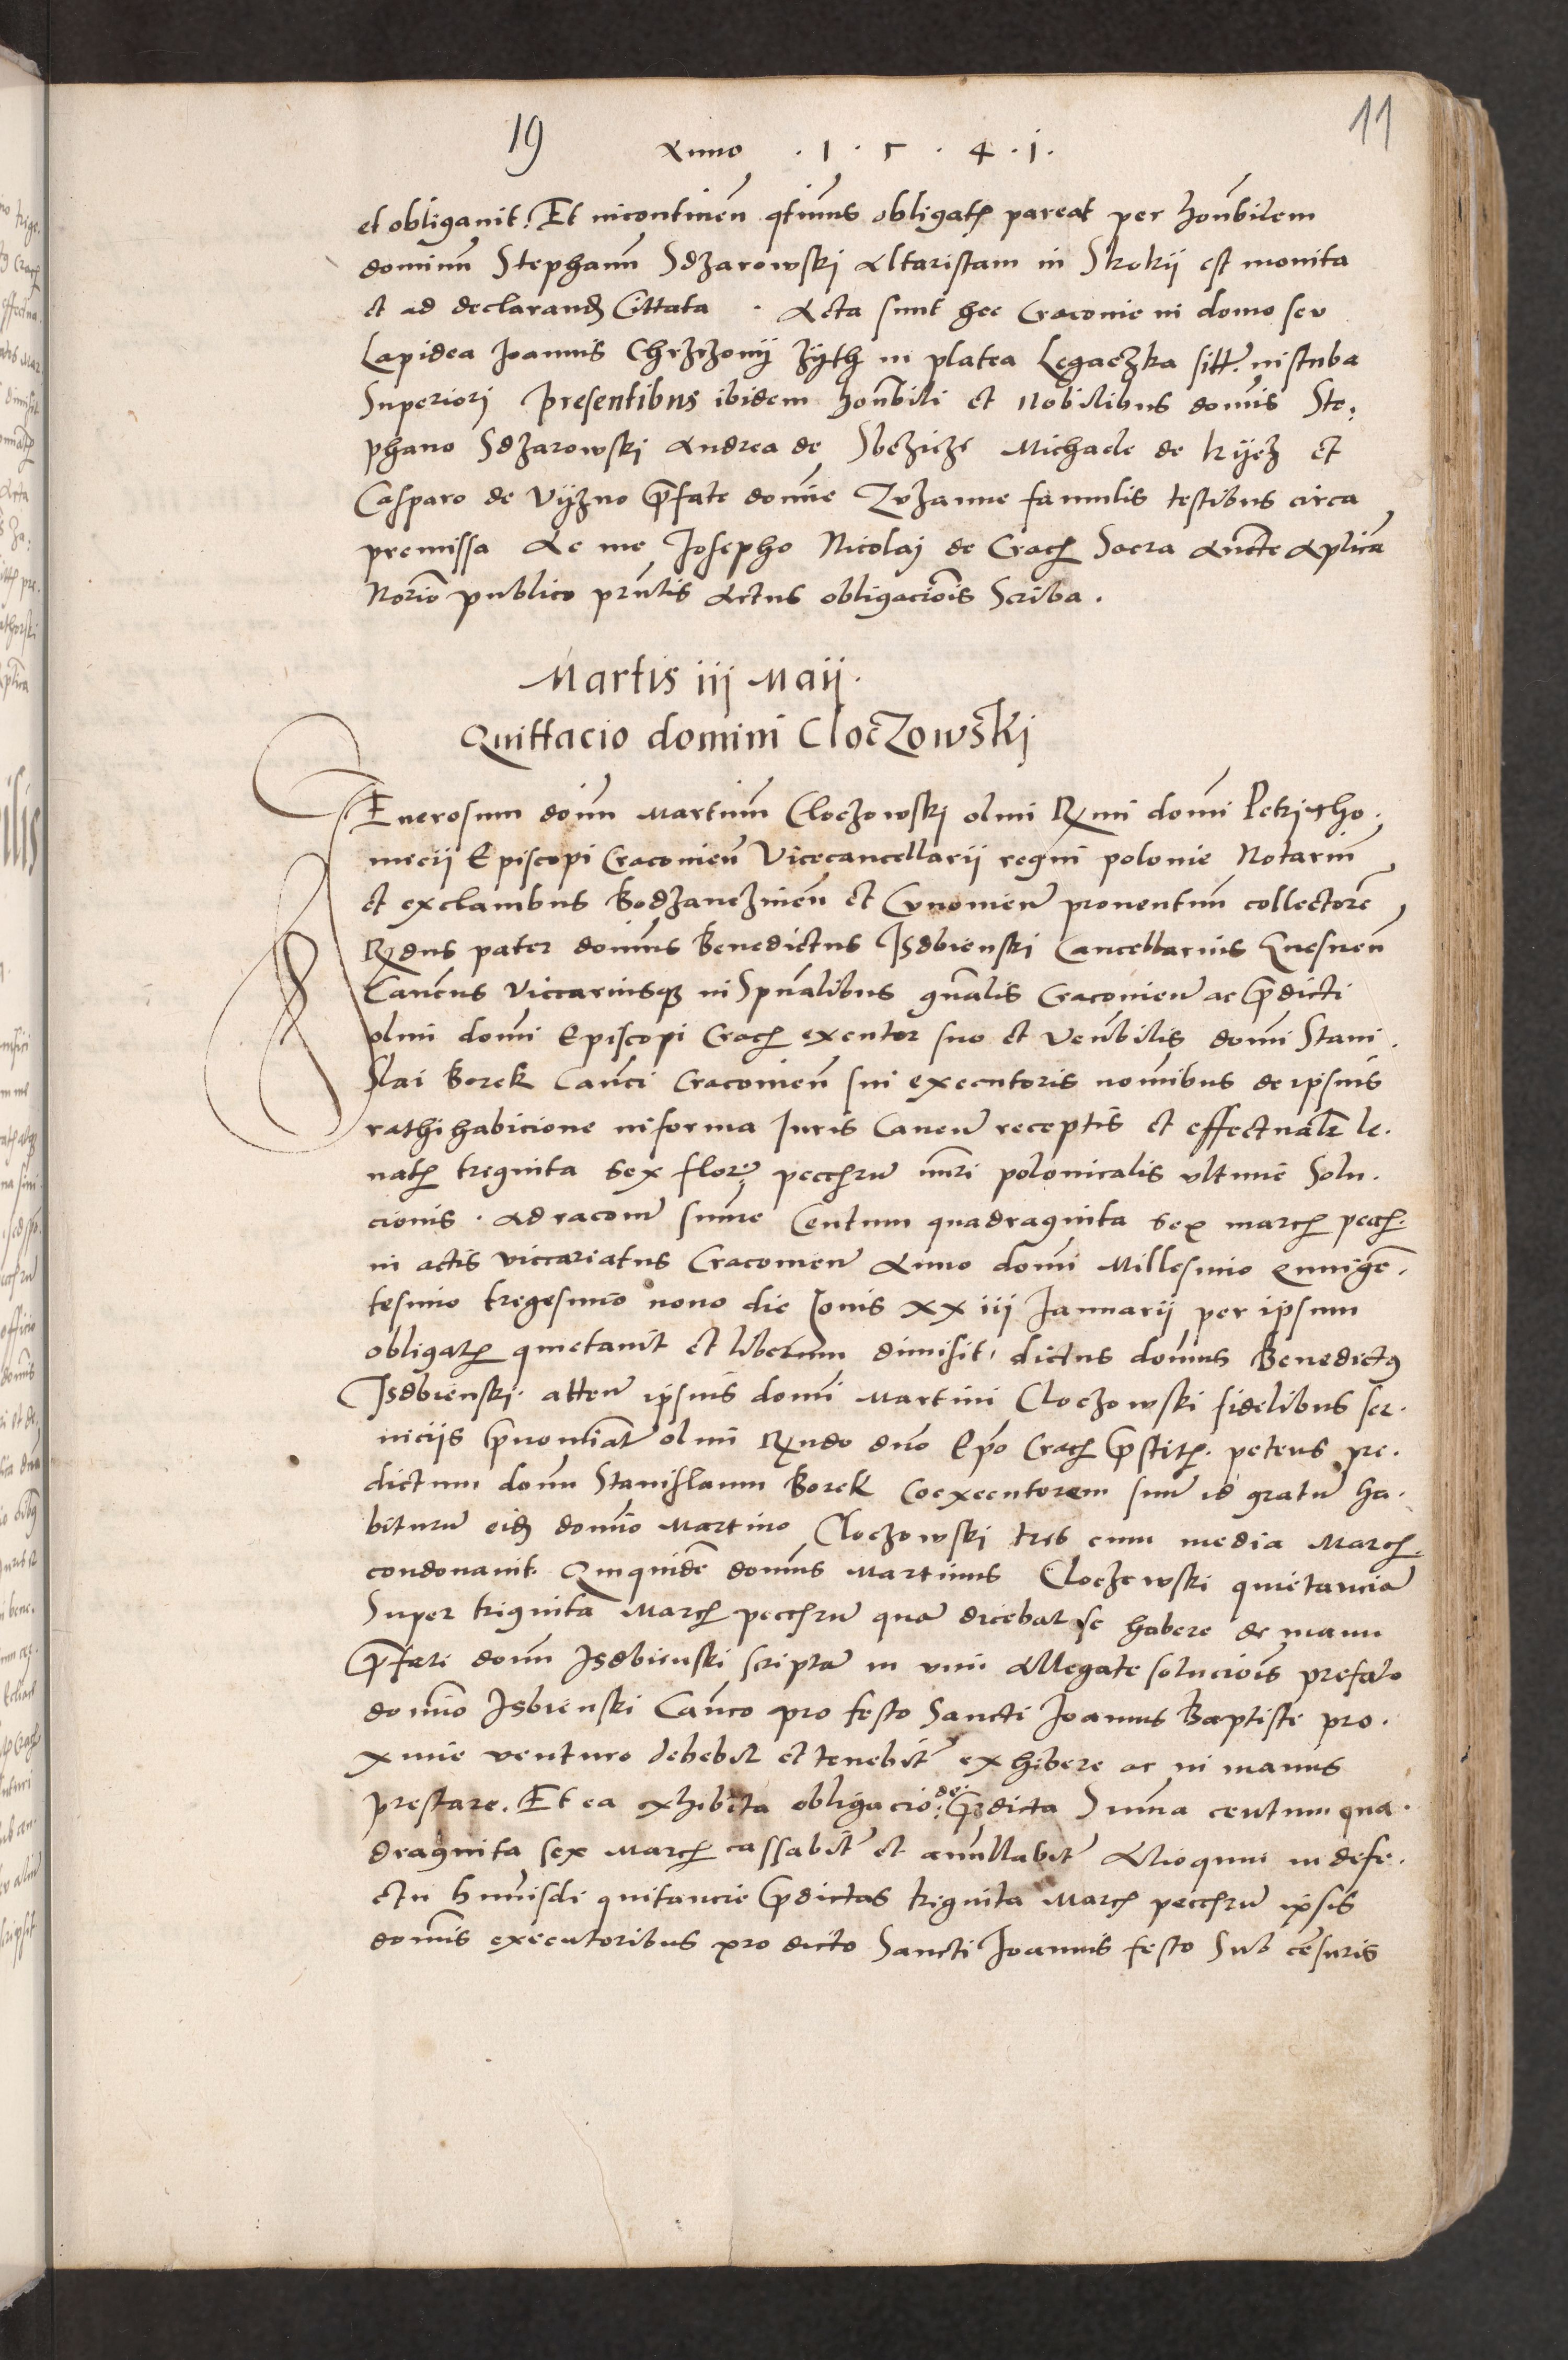 19
11
Anno . 1 . 5 . 4 . 1 .
et obligavit. Et incontinen̄ qtinus obligatꝭ pareat per honb̄ilem
dominū Stephanū Sdzarowski Altaristam in Skokij est monita
et ad declarandꝭ Cittata . Acta sunt hec Cracovie in domo seu
Lapidea Joannis Chrzczonij Zijth in platea Legaczka sitt. in stuba
Superiori presentibus ibidem honb̄ili et nobilibus domīs Ste,
phano Sdzarowski Andrea de Sbczicze Michaele de Kijcz et
Casparo de Vijzno p̄fate domīe Zuzanne famulis testibus circa
premissa Ac me Josepho Nicolaj de Cracꝭ Sacra Auctte Aplica
Norīo publico pn̄tis Actus obligacioīs Scriba .
Martis iij Maij .
Quittacio domini Cloczowski
Generosum doīm Martinū Cloczowski olim Rm̄i domī Petri Tho.
micij Episcopi Cracovien̄ Vicecancellarij regni polonie Notariū
et ex clavibus Bodzanczinen̄ et Cunovien̄ proventuum collectorē
Rdus pater domīus Benedictus Isdbienski Cancellarius Gnesnen̄
Canc̄us viccariusqꝫ in Spūalibus gn̄alis Cracovien̄ ac p̄dicti
olim domī Episcopi Cracꝭ executor suo et venb̄ilis domī Stani.
Slai Borek Can̄ci Cracovien̄ sui executoris nomībus de ipsius
rathihabicione in forma Juris Caven̄ receptis et effectualr̄ le.
vatꝭ triginta sex flor. peccꝭrum nūri polonicalis ultimē Solu.
cionis . ad racom̄ sum̄e Centum quadraginta sex marcꝭ peccꝭ
in actis viccariatus Cracovien̄ Anno domī Millesimo quingē.
tesimo tregesimo nono die Jovis xxiij Januarij per ipsum
obligatꝭ quietavit et liberum dimisit, dictus domīus Benedictꝰ
Isdbienski atten̄ ipsius domī Martini Cloczowski fidelibus ser.
viciis p̄nomīat olim Rndo dno Epō Cracꝭ p̄stitꝭ. petens pre.
dictum domū Stanislaum Borek Coexecutorem suū id gratū ha.
biturū eidꝭ domīo Martino Cloczowski tres cum media Marcꝭ
condonavit. Quiquidē domīus Martinus Cloczowski quietanciā
Super triginta Marcꝭ peccꝭrum quā dicebat se habere de manu
p̄fati domī Isdbienski scriptā in vim Allegate solucioīs prefato
domīo Isbienski Can̄co pro festo Sancti Joannis Baptiste pro.
xime venturo debebit et tenebitꝛ exhibere ac in manus
prestare. Et ea exhibita obligacio de p̄dicta Summa centum qua.
draginta sex Marcꝭ cassabitꝛ et anullabitꝛ Alioquin in defe.
ctu hmōi quitancie p̄dictas triginta Marcꝭ peccꝭrum ipsis
domīs executoribus pro dicto Sancti Joannis festo Sub cēsuris